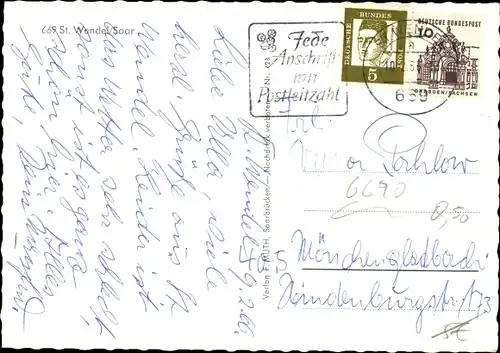 669 St. Wendel/Saar
St. Wendel, 9.2.66
Liebe Ulla, viele
herzl. Grüße aus St.
Wendel. Leider ist
das Wetter sehr schlecht,
sonst ist es ganz
schön hier. Alles
Gute, Dein
Verlag F. MUTH, Saarbrücken Nachdruck verboten Nr.
Jede
Anschrift
mit
Postleitzahl
DEUTSCHE
BUNDES
POST
5
DEUTSCHE BUNDESPOST
10
DRESDEN/SACHSEN
669
Frl.
6690
0,50
405
Mönchengladbach
Hindenburgstr. 173